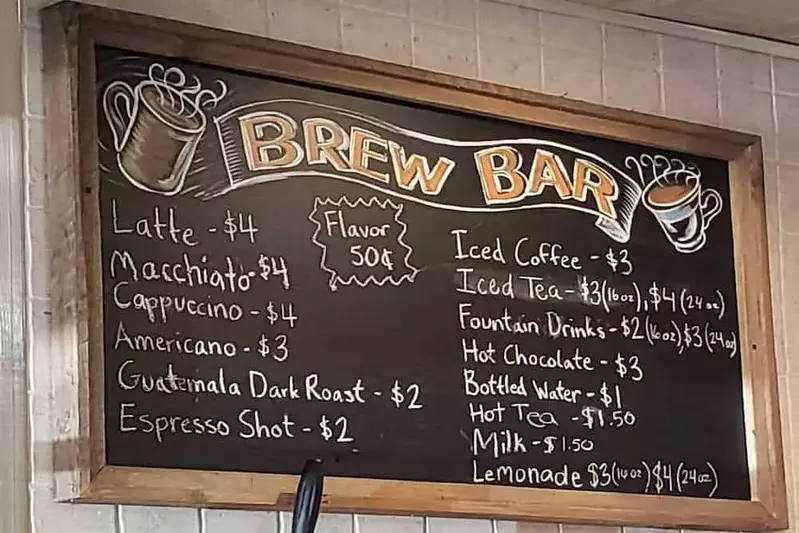 BREW BAR
Latte - $4
Macchiato - $4
Cappuccino - $4
Americano - $3
Guatemala Dark Roast - $2
Espresso Shot - $2
Flavor
50¢
Iced Coffee - $3
Iced Tea - $3 (16 oz), $4 (24 oz)
Fountain Drinks - $2 (16 oz), $3 (24 oz)
Hot Chocolate - $3
Bottled Water - $1
Hot Tea - $1.50
Milk - $1.50
Lemonade $3 (16 oz) $4 (24 oz)